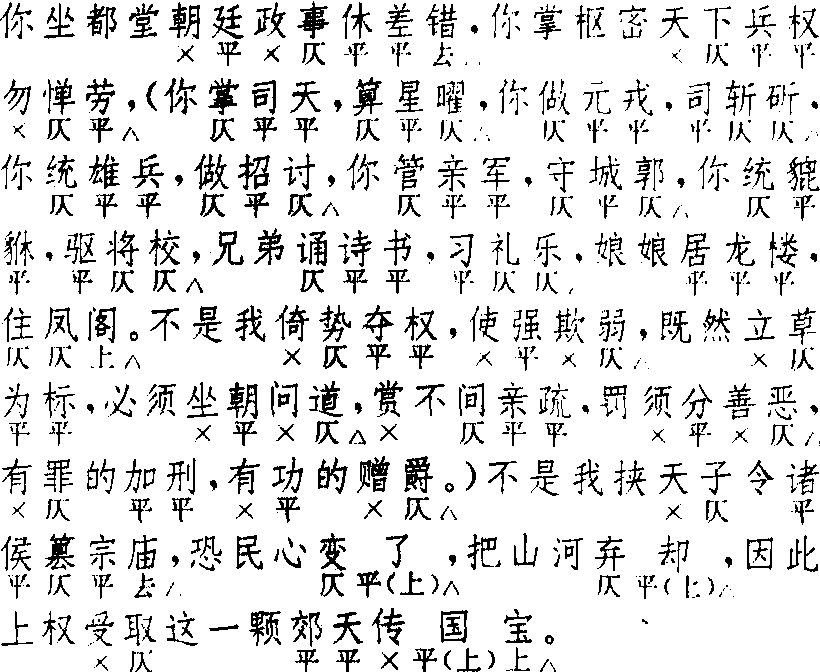 你坐都堂朝廷政事休差错，你掌枢密天下兵权
× 平 × 仄 平 平 去△ × 仄 平 平
勿惮劳，(你掌司天，算星曜，你做元戎，司斩斫，
× 仄 平△ 仄 平 平 仄 平 仄△ 仄 平 平 平 仄 仄△
你统雄兵，做招讨，你管亲军，守城郭，你统貔
仄 平 平 仄 平 仄△ 仄 平 平 仄 平 仄△ 仄 平
貅，驱将校，兄弟诵诗书，习礼乐，娘娘居龙楼，
平 平 仄 仄△ 仄 平 平 平 仄 仄△ 平 平 平
住凤阁。不是我倚势夺权，使强欺弱，既然立草
仄 仄 上△ × 仄 平 平 × 平 × 仄△ × 仄
为标，必须坐朝问道，赏不间亲疏，罚须分善恶，
平 平 × 平 × 仄△ × 仄 平 平 × 平 × 仄△
有罪的加刑，有功的赠爵。)不是我挟天子令诸
× 仄 平 平 × 平 × 仄△ × 仄 平
侯篡宗庙，恐民心变了，把山河弃却，因此
平 仄 平 去△ 仄 平(上)△ 仄 平(上)△
上权受取这一颗郊天传国宝。
× 仄 平 平 × 平(上) 上△